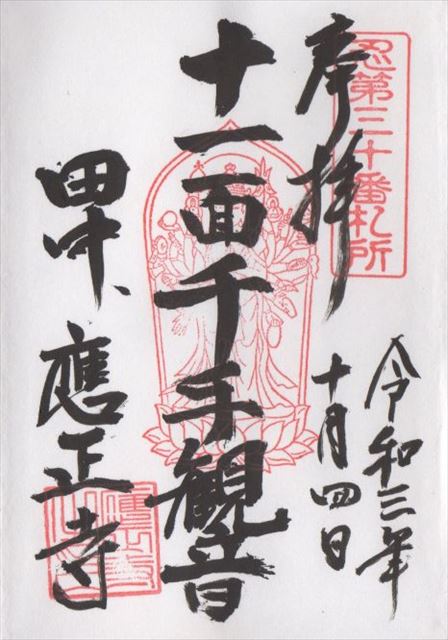 忍第三十番札所
奉拝
令和三年
十月四日
十一面千手観音
田中、
應正寺